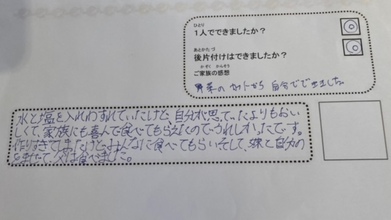 ひとり
1人でできましたか？
◎
あとかたづ
後片付けはできましたか？
◎
かぞく かんそう
ご家族の感想
野菜のカットから自分でできました。
水と塩を入れわすれていたけど、自分が思っていたよりもおい
しくて、家族にも喜んで食べてもらえたのでうれしかったです。
作りすぎてしまったけど、みんなに食べてもらいそして、妹と自分の